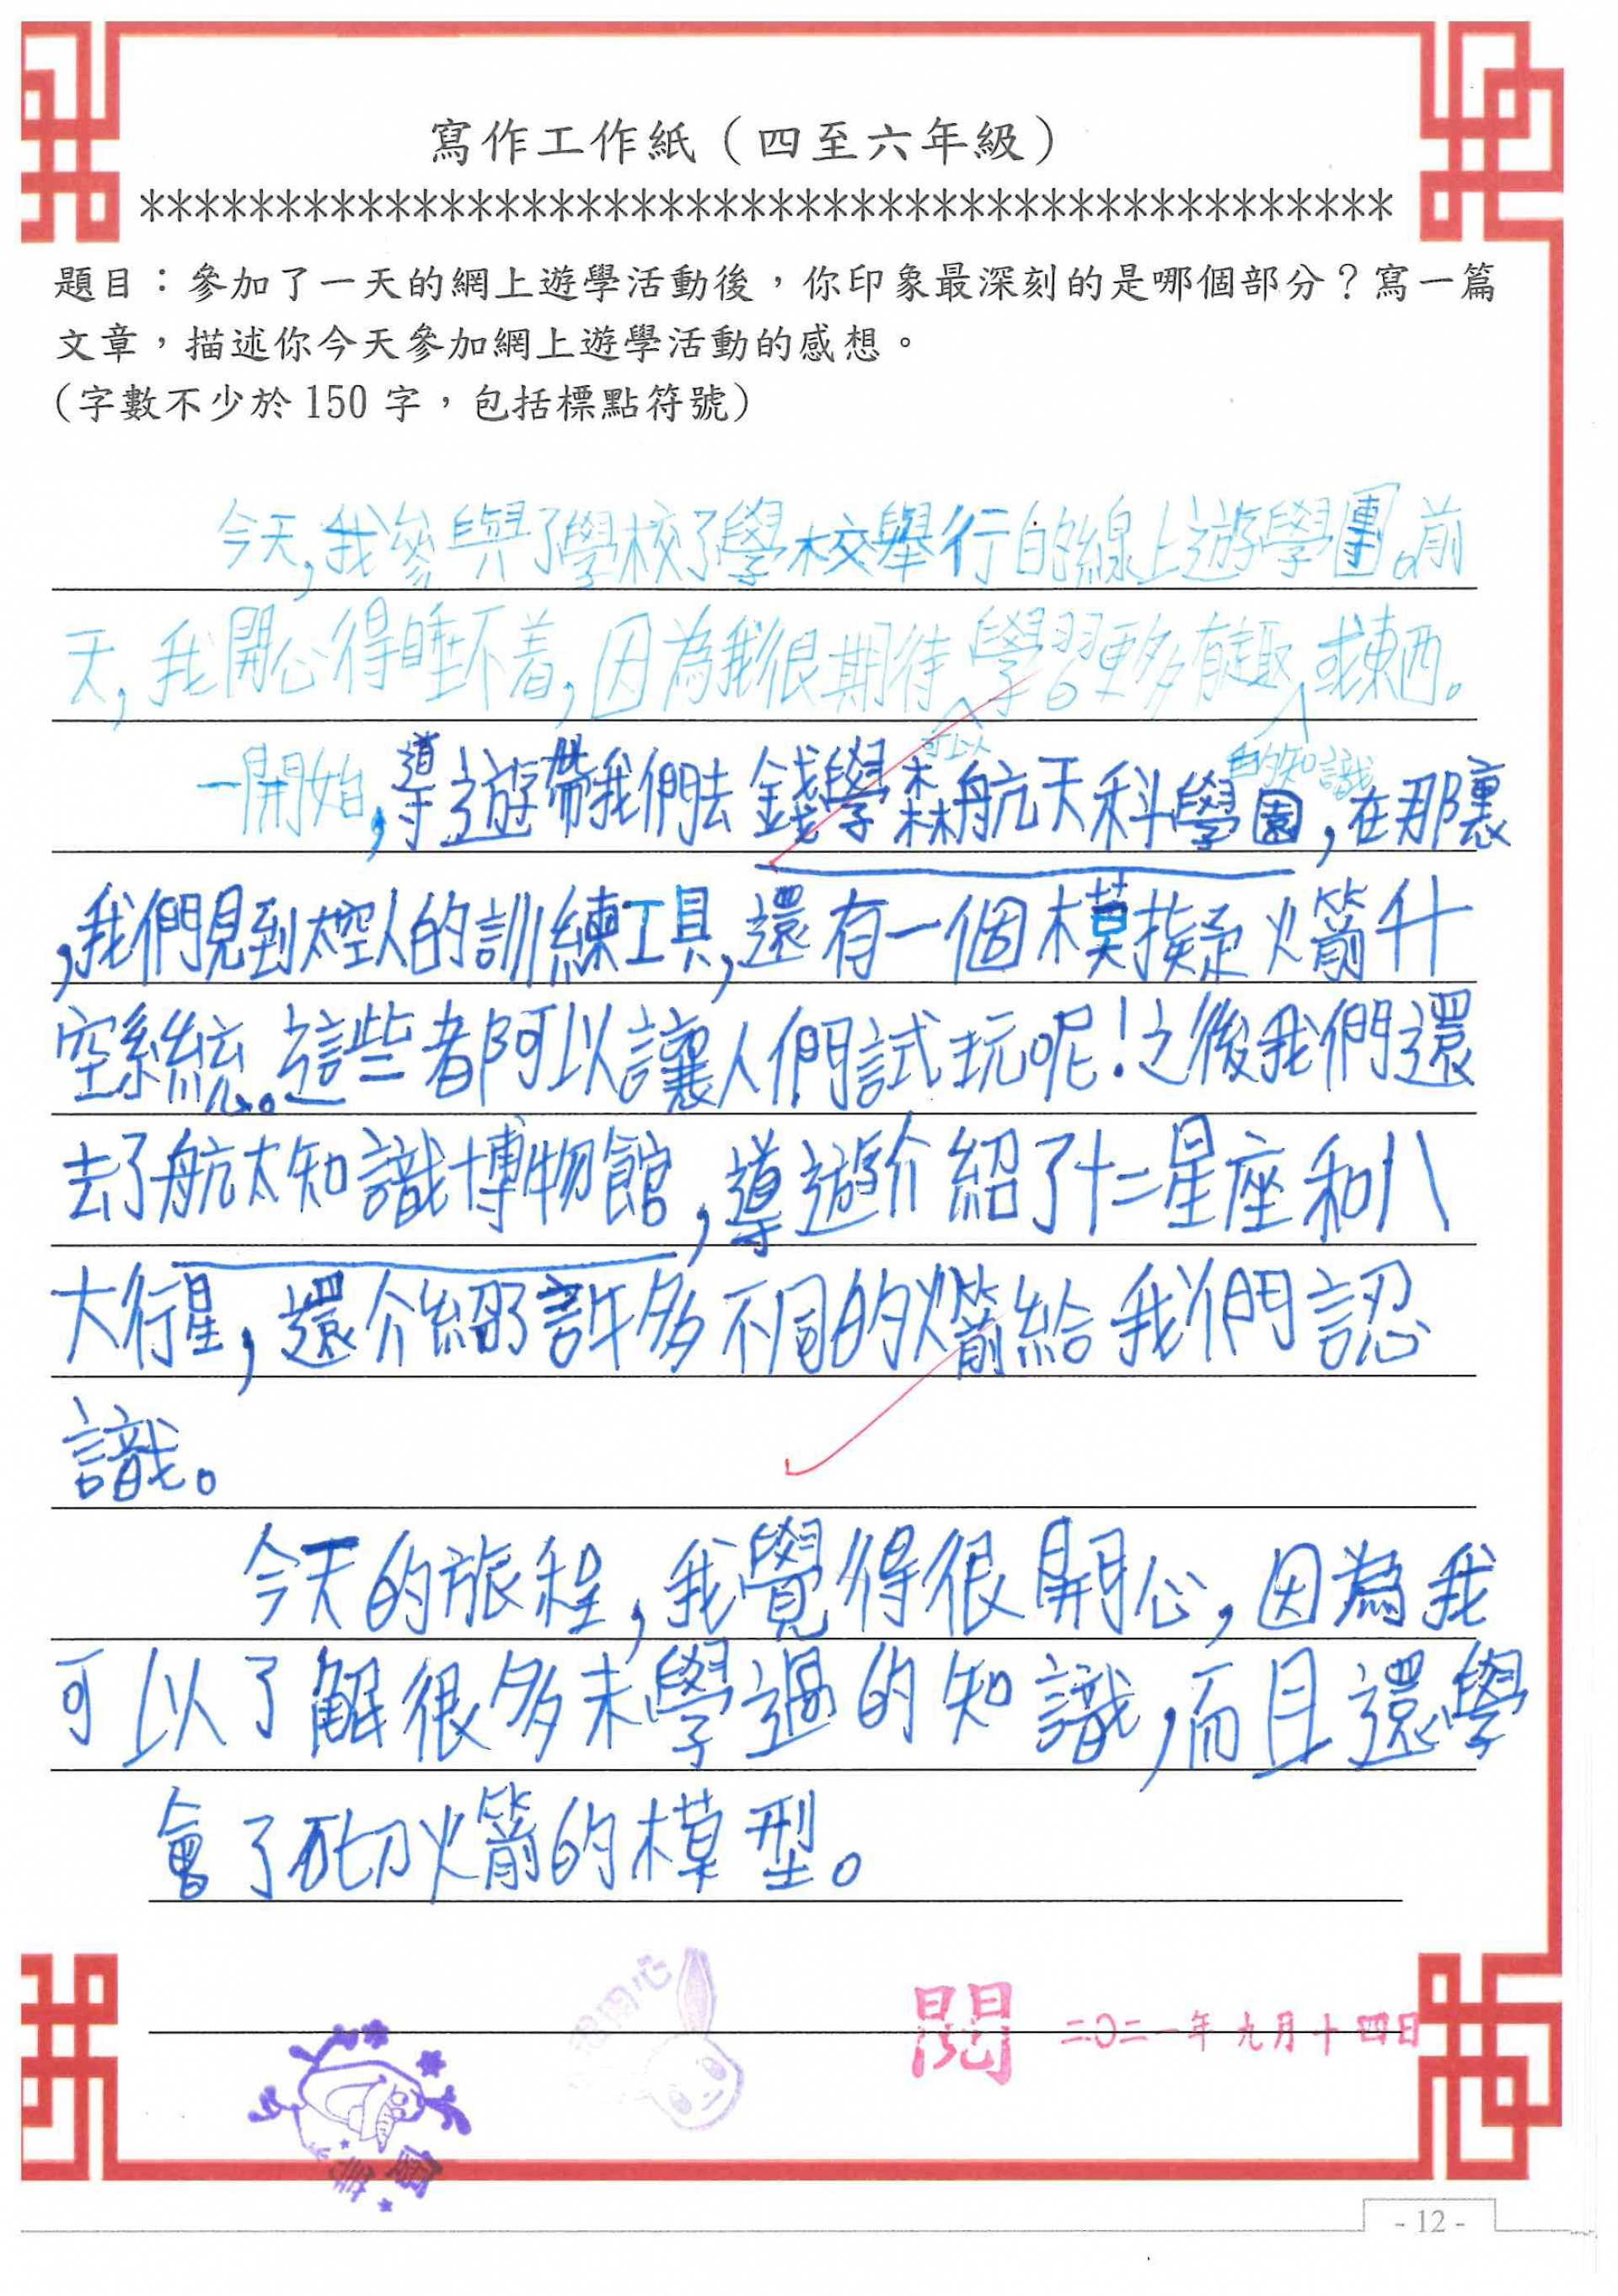 寫作工作紙（四至六年級）
**********************************************
題目：參加了一天的網上遊學活動後，你印象最深刻的是哪個部分？寫一篇
文章，描述你今天參加網上遊學活動的感想。
(字數不少於150字，包括標點符號)
今天,我參與了學校了學校舉行的線上遊學團。前
天,我開心得睡不着,因為我很期待學習更多有趣或東西。
可以
的知識
一開始,導遊帶我們去錢學森航天科學園,在那裏
,我們見到太空人的訓練工具,還有一個模擬火箭升
空系統。這些都可以讓人們試玩呢!之後我們還
去了航太知識博物館,導遊介紹了十二星座和八
大行星,還介紹了許多不同的火箭給我們認
識。
今天的旅程,我覺得很開心,因為我
可以了解很多未學過的知識,而且還學
會了砌火箭的模型。
用心
閱 二〇二一年九月十四日
- 12 -